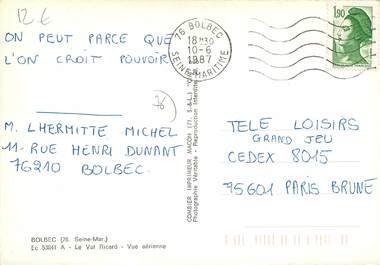 12 €
ON PEUT PARCE QUE
L'ON CROIT POUVOIR
76
M. LHERMITTE MICHEL
11 - RUE HENRI DUNANT
76210 BOLBEC.
BOLBEC (76. Seine-Mar.)
Ec 53041 A - Le Val Ricard - Vue aérienne
COMBIER IMPRIMEUR MACON (71. S.-&-L.)
Photographie Véritable - Reproduction Interdite
76 BOLBEC
18H30
10-6
1987
SEINE-MARITIME
1,90
TELE LOISIRS
GRAND JEU
CEDEX 8015
75601 PARIS BRUNE